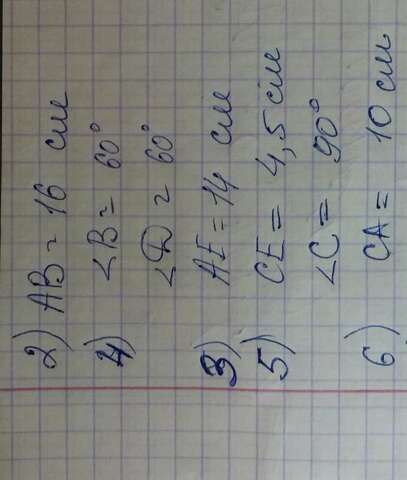 2) AB = 16 см
4) ∠B = 60°
∠D = 60°
3) AE = 14 см
5) CE = 4,5 см
∠C = 90°
6) CA = 10 см